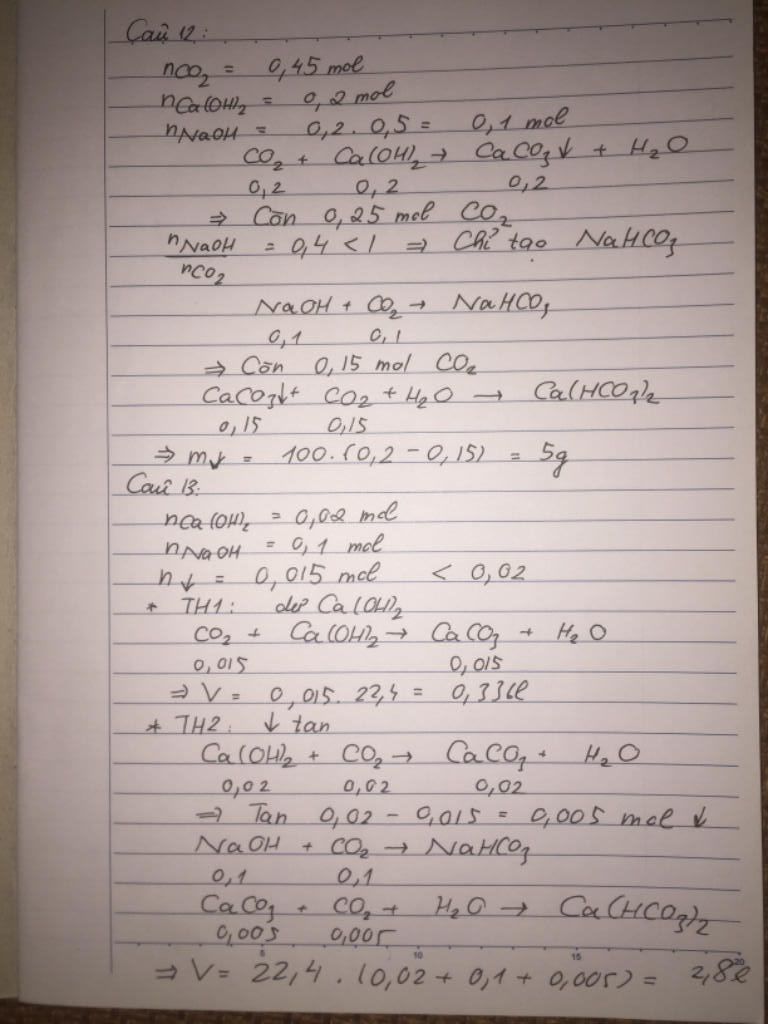 Câu 12:
nCO₂ = 0,45 mol
nCa(OH)₂ = 0,2 mol
nNaOH = 0,2 . 0,5 = 0,1 mol
CO₂ + Ca(OH)₂ → CaCO₃↓ + H₂O
0,2 0,2 0,2
⇒ Còn 0,25 mol CO₂
nNaOH / nCO₂ = 0,4 < 1 ⇒ Chỉ tạo NaHCO₃
NaOH + CO₂ → NaHCO₃
0,1 0,1
⇒ Còn 0,15 mol CO₂
CaCO₃↓ + CO₂ + H₂O → Ca(HCO₃)₂
0,15 0,15
⇒ m↓ = 100.(0,2 - 0,15) = 5g
Câu 13:
nCa(OH)₂ = 0,02 mol
nNaOH = 0,1 mol
n↓ = 0,015 mol < 0,02
* TH1: dư Ca(OH)₂
CO₂ + Ca(OH)₂ → CaCO₃ + H₂O
0,015 0,015
⇒ V = 0,015. 22,4 = 0,336l
* TH2: ↓ tan
Ca(OH)₂ + CO₂ → CaCO₃ + H₂O
0,02 0,02 0,02
⇒ Tan 0,02 - 0,015 = 0,005 mol ↓
NaOH + CO₂ → NaHCO₃
0,1 0,1
CaCO₃ + CO₂ + H₂O → Ca(HCO₃)₂
0,005 0,005
5 10 15 20
⇒ V = 22,4 . (0,02 + 0,1 + 0,005) = 2,8l